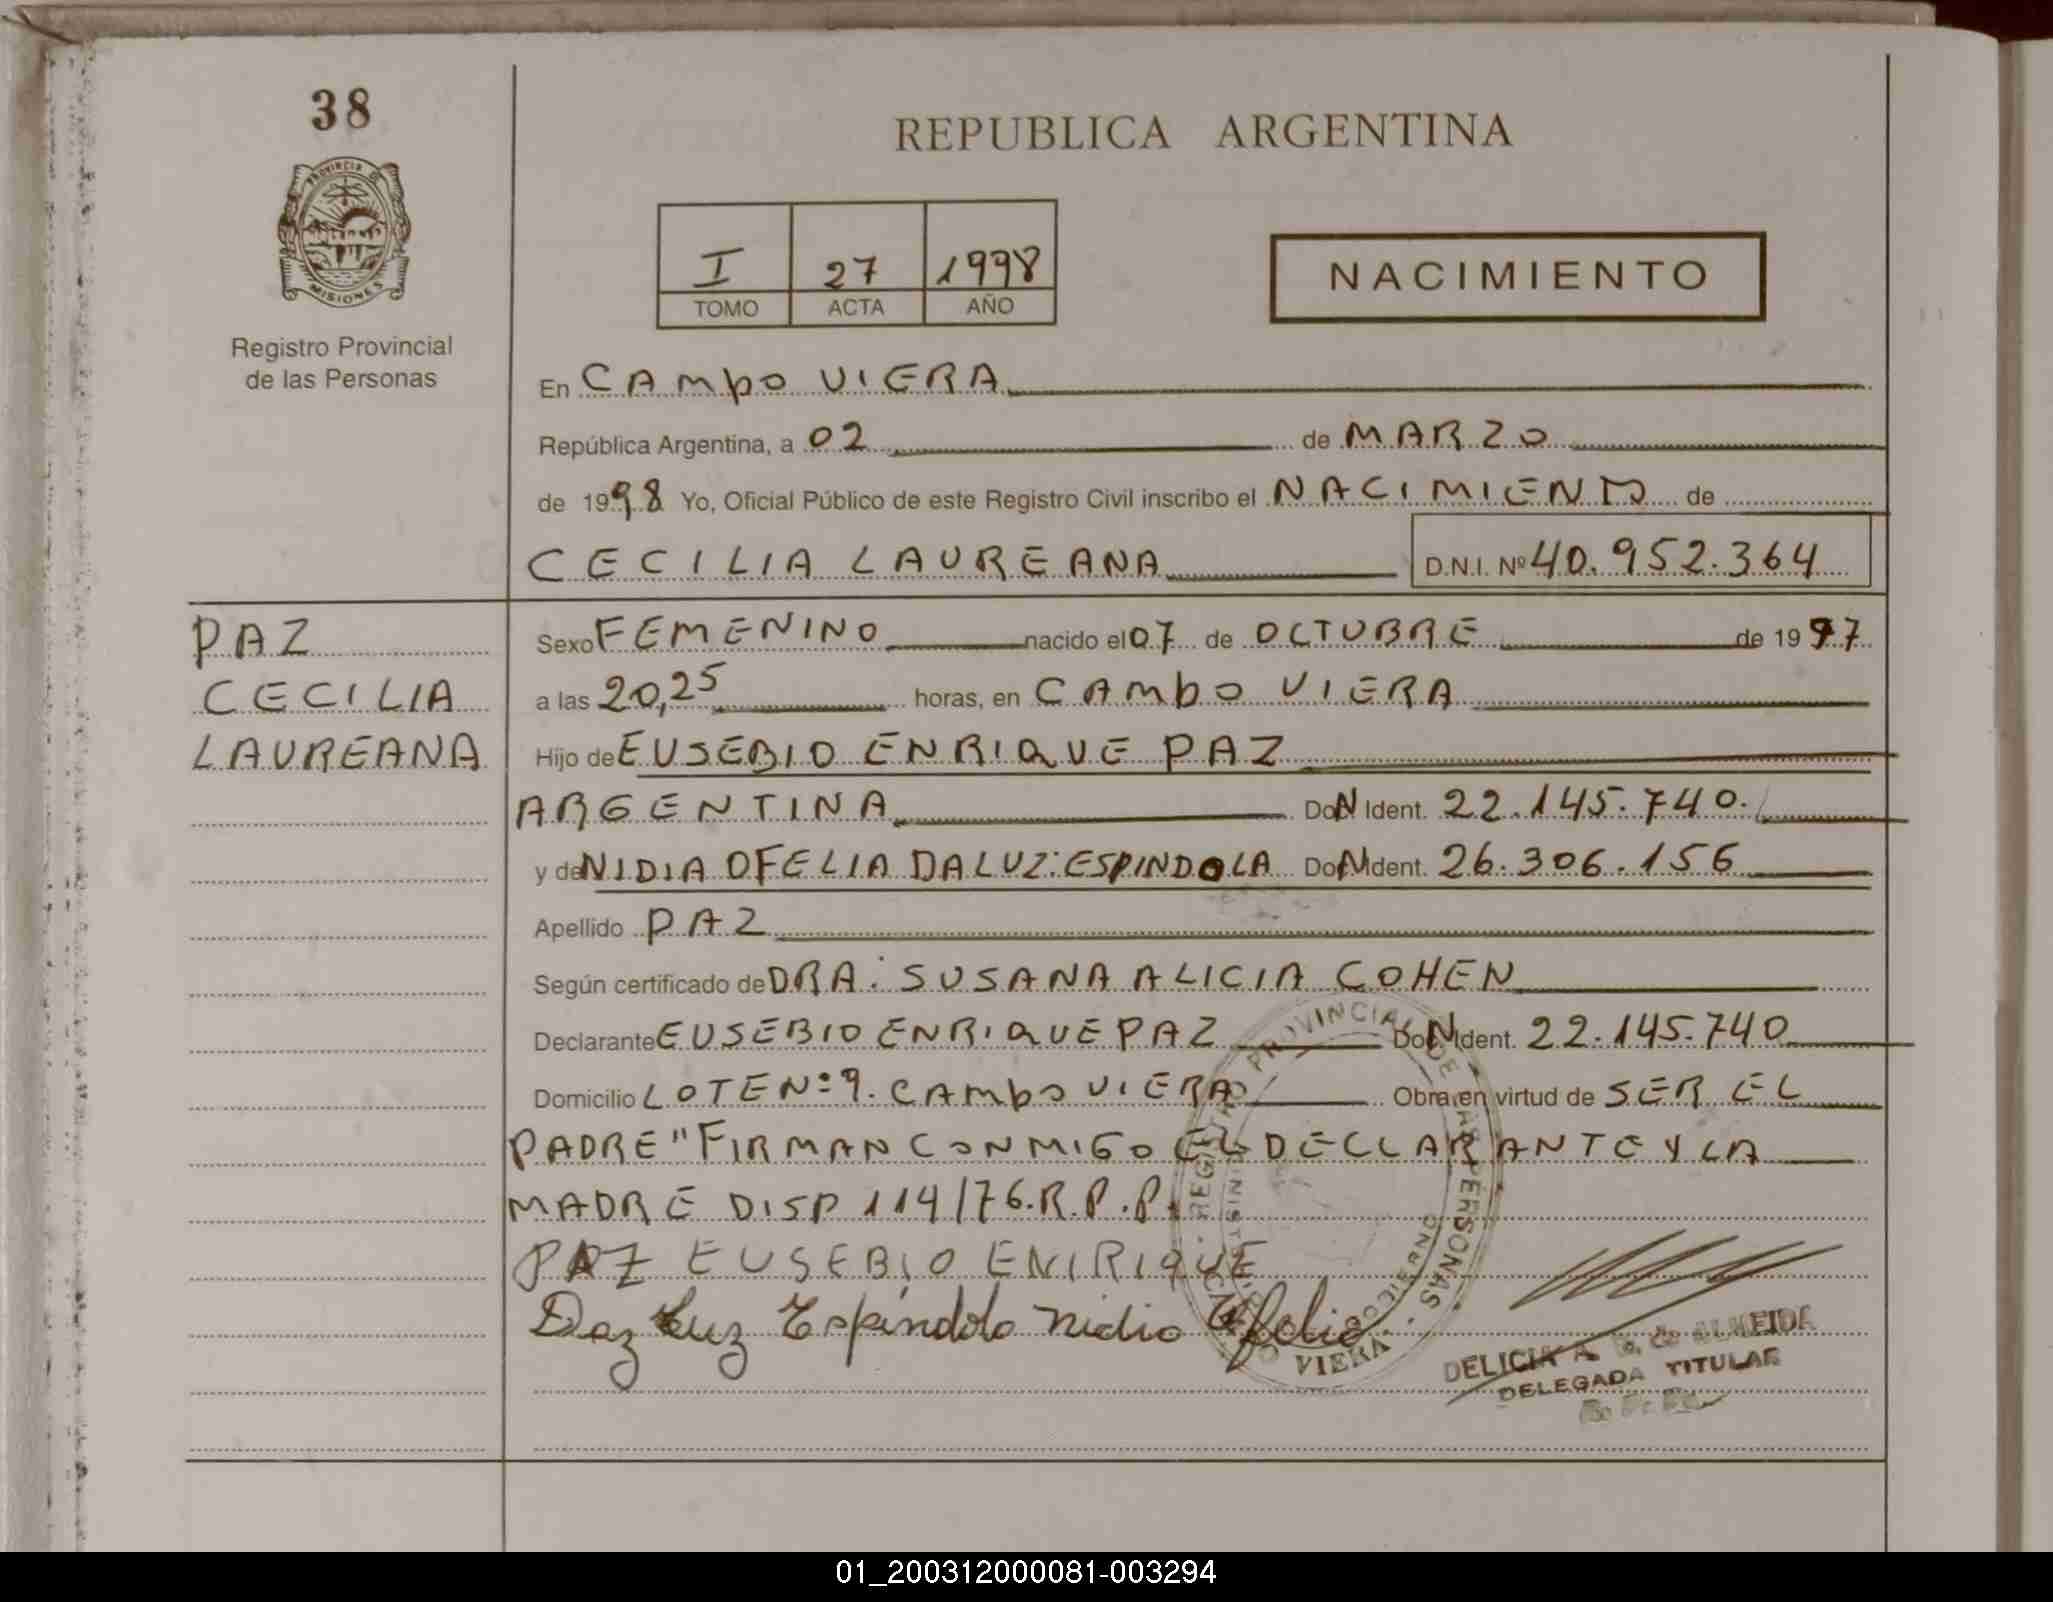 38
REPUBLICA ARGENTINA
PROVINCIA DE
MISIONES
Registro Provincial
de las Personas
I 27 1998
TOMO ACTA AÑO
NACIMIENTO
En CAMPO VIERA
República Argentina, a 02 de MARZO
de 1998 Yo, Oficial Público de este Registro Civil inscribo el NACIMIENTO de
CECILIA LAUREANA D.N.I. Nº 40.952.364
PAZ
CECILIA
LAUREANA
Sexo FEMENINO nacido el 07 de OCTUBRE de 1997
a las 20,25 horas, en CAMPO VIERA
Hijo de EUSEBIO ENRIQUE PAZ
ARGENTINA DoN Ident. 22.145.740.
y de NIDIA OFELIA DA LUZ: ESPINDOLA DoN Ident. 26.306.156
Apellido PAZ
Según certificado de DRA: SUSANA ALICIA COHEN
Declarante EUSEBIO ENRIQUE PAZ DoN Ident. 22.145.740
Domicilio LOTE Nº 9. CAMPO VIERA Obra en virtud de SER EL
PADRE "FIRMAN CONMIGO EL DECLARANTE Y LA
MADRE DISP 114/76.R.P.P.
PAZ EUSEBIO ENIRIQUE
Daz Luz Espíndola Nidia Ofelia
REGISTRO PROVINCIAL DE LAS PERSONAS
VIERA
DELICIA A. de ALMEIDA
DELEGADA TITULAR
01_200312000081-003294